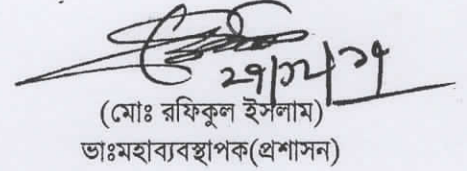 (মোঃ রফিকুল ইসলাম)
ভাঃমহাব্যবস্থাপক(প্রশাসন)